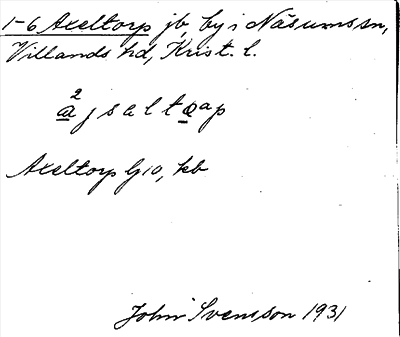 1-6 Axeltorp jb, by i Näsums sn,
Villands hd, Krist. l.
Axeltorp lj10, kb
John Svensson 1931